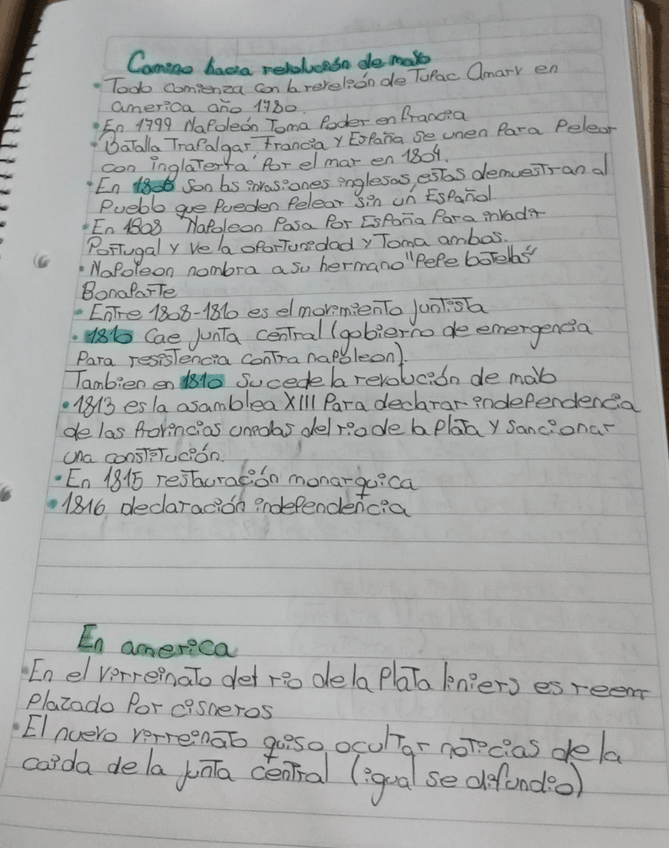 Camino hacia revolución de mayo
• Todo comienza con la revelión de Tupac Amaru en
america año 1780.
• En 1799 Napoleón Toma Poder en Francia
• Batalla Trafalgar Francia y España se unen Para Pelear
con inglaterra Por el mar en 1804.
• En 1806 son las invasiones inglesas, estas demuestran al
Pueblo que Pueden Pelear sin un Español
• En 1808 Napoleon Pasa Por España Para invadir
Portugal y ve la oportunidad y Toma ambos.
• Napoleon nombra a su hermano "Pepe botelas"
Bonaparte
• Entre 1808-1810 es el movimiento juntista
• 1810 Cae Junta central (gobierno de emergencia
Para resistencia contra napoleon).
Tambien en 1810 sucede la revolución de mayo
• 1813 es la asamblea XIII Para declarar independencia
de las Provincias unidas del rio de la Plata y sancionar
una constitución.
• En 1815 restauración monarquica
• 1816 declaración independencia
En america
• En el virreinato del rio de la Plata liniers es reem
plazado Por cisneros
• El nuevo virreinato quiso ocultar noticias de la
caida de la junta central (igual se difundio)